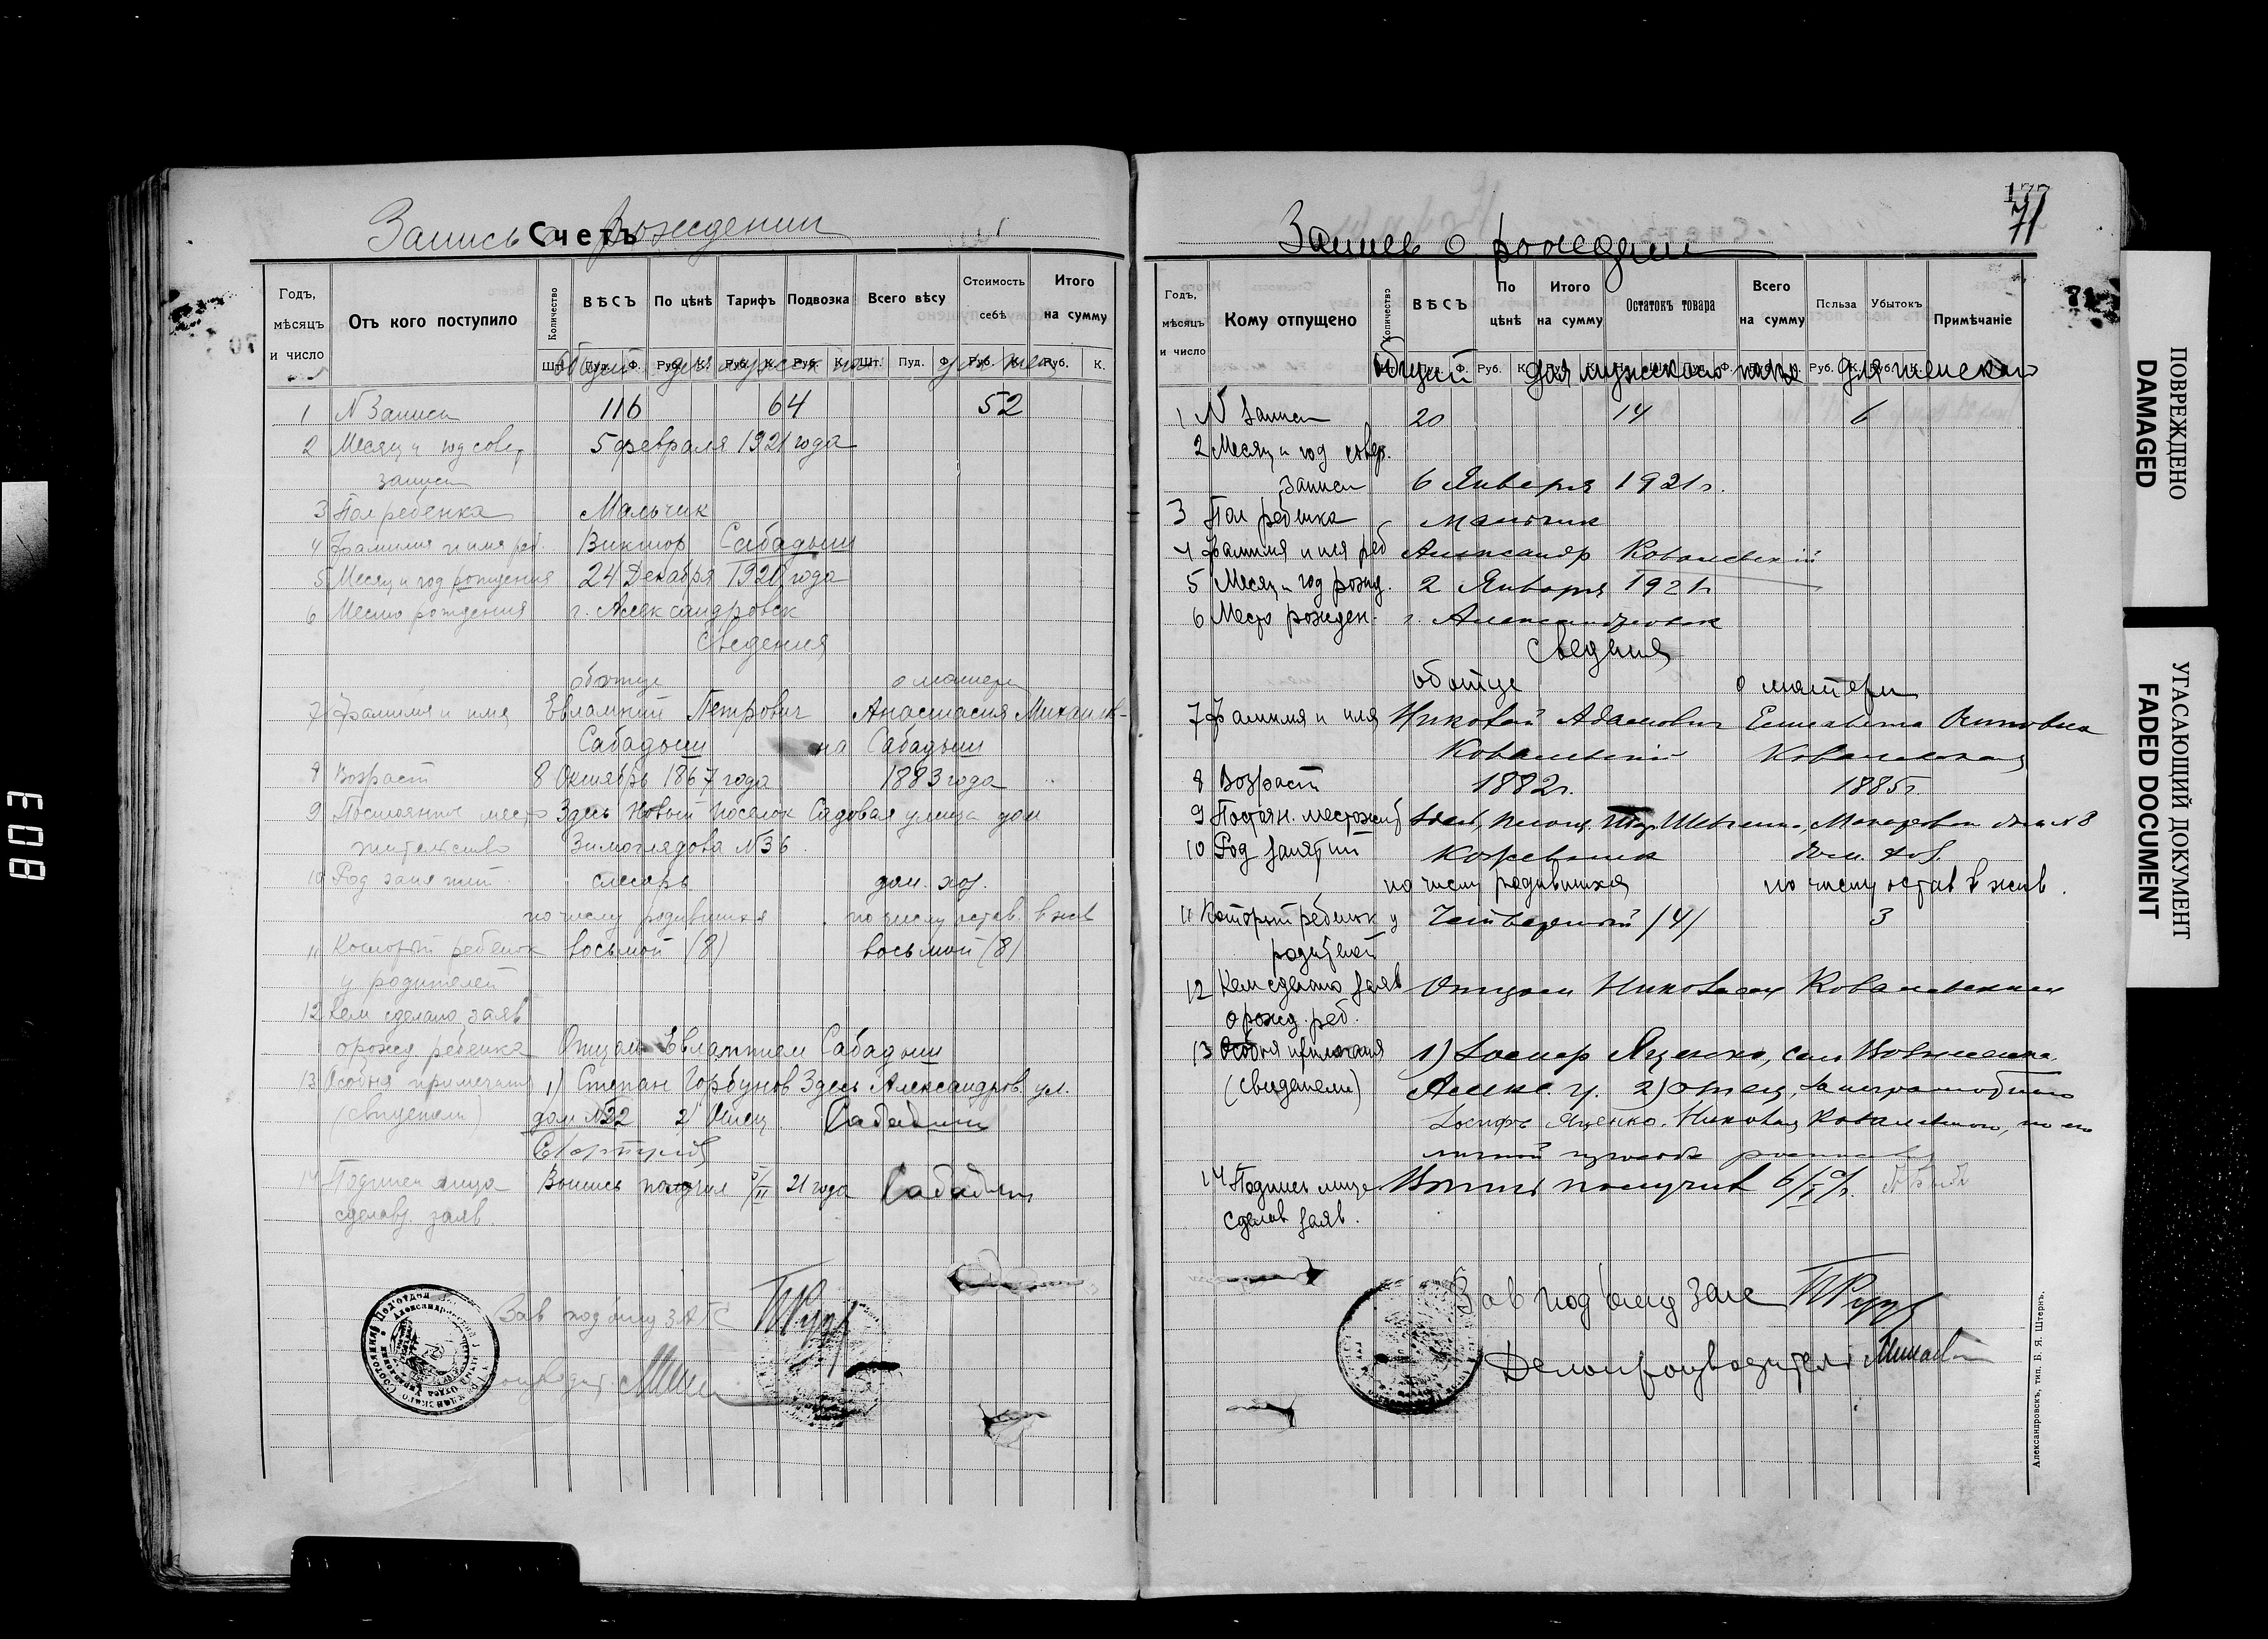 Запись о рождении
Счетъ
Годъ, мѣсяцъ и число
Отъ кого поступило
Количество
ВѢСЪ
По цѣнѣ
Тарифъ
Подвозка
Всего вѣсу
Стоимость себѣ
Итого на сумму
Шт. Пуд. Ф. Руб. К. Руб. К. Руб. К. Шт. Пуд. Ф. Руб. К. Руб. К.
Общий для мужск. пола для жен
1 N Записи 116 64 52
2 Месяц и год совер.
записи 5 февраля 1921 года
3 Пол ребенка Мальчик
4 Фамилия и имя реб. Виктор Сабадыш
5 Месяц и год рождения 24 Декабря 1920 года
6 Место рождения г. Александровск
Сведения
об отце о матери
7 Фамилия и имя Евлампий Петрович Анастасия Михайлов-
Сабадыш на Сабадыш
8 Возраст 8 Октябрь 1867 года 1883 года
9 Постоянное место Здесь Новый поселок Садовая улица дом
жительство Зимоглядова №36
10 Род занятий слесарь дом. хоз.
по числу родившихся по числу остав. в жив
11 Который ребенок восьмой (8) восьмой (8)
у родителей
12 Кем сделано заяв
о рожд ребенка Отцом Евлампием Сабадыш
13 Особыя примечания 1) Степан Горбунов Здесь Александров. ул.
(свидетели) дом №22 2) Отец Сабадыш
14 Подписи лица Выпись получил 5/II 21 года Сабадыш
сделавз. заяв.
Зав подотд ЗАГС
177
71
Запись о рождении
Годъ, мѣсяцъ и число
Кому отпущено
Количество
ВѢСЪ
По цѣнѣ
Итого на сумму
Остатокъ товара
Всего на сумму
Польза
Убытокъ
Примѣчаніе
Общий для мужского пола для женского
1 N записи 20 14 6
2 Месяц и год совер.
записи 6 Января 1921 г.
3 Пол ребенка мальчик
4 Фамилия и имя реб Александр Ковалевский
5 Месяц и год рожд. 2 Января 1921 г
6 Место рожден. г. Александровск
Сведения
об отце о матери
7 Фамилия и имя Николай Адамович Елисавета Осиповна
Ковалевский Ковалевская
8 Возраст 1882 г. 1885 г.
9 Постоян. местожит Здесь, Шевченко, дом N 8
10 Род занятий Кожевник дом. хоз.
по числу родившихся по числу остав в жив.
11 Который ребенок у Четвертый (4) 3
родителей
12 Кем сделано заяв Отцом Николаем Ковалевским
о рожд. реб.
13 Особыя примечания 1) Иосиф Яценко, село Вознесенка
(свидетели) Алекс. у. 2) отец, за неграмотного
Иосифъ Яценко. Николая Ковалевского, по его
личной просьбе
14 Подпись лица Выпись получил 6/I 21 г.
сделав заяв.
Зав подотд Загс
Делопроизводитель
Александровскъ, тип. Б. Я. Штернъ.
ПОВРЕЖДЕНО
DAMAGED
УГАСАЮЩИЙ ДОКУМЕНТ
FADED DOCUMENT
803